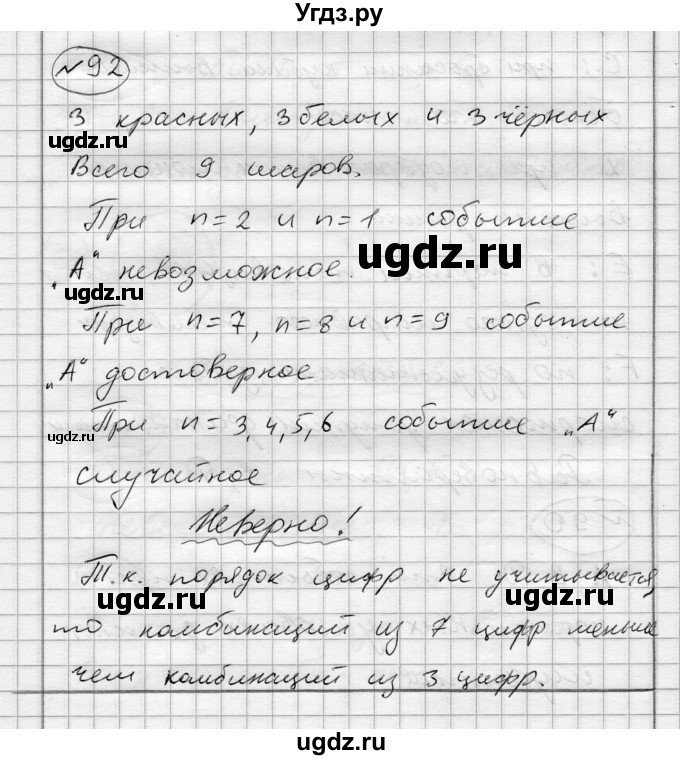 Угдз.ру
№92
3 красных, 3 белых и 3 чёрных
ugdz.ru
Всего 9 шаров.
При n=2 и n=1 событие
ugdz.ru
„А“ невозможное.
ugdz.ru
При n=7, n=8 и n=9 событие
„А“ достоверное
ugdz.ru
При n=3,4,5,6 событие „А“
ugdz.ru
случайное
Неверно!
Т.к. порядок цифр не учитывается,
ugdz.ru
ugdz.ru
то комбинаций из 7 цифр меньше
чем комбинаций из 3 цифр.
ugdz.ru